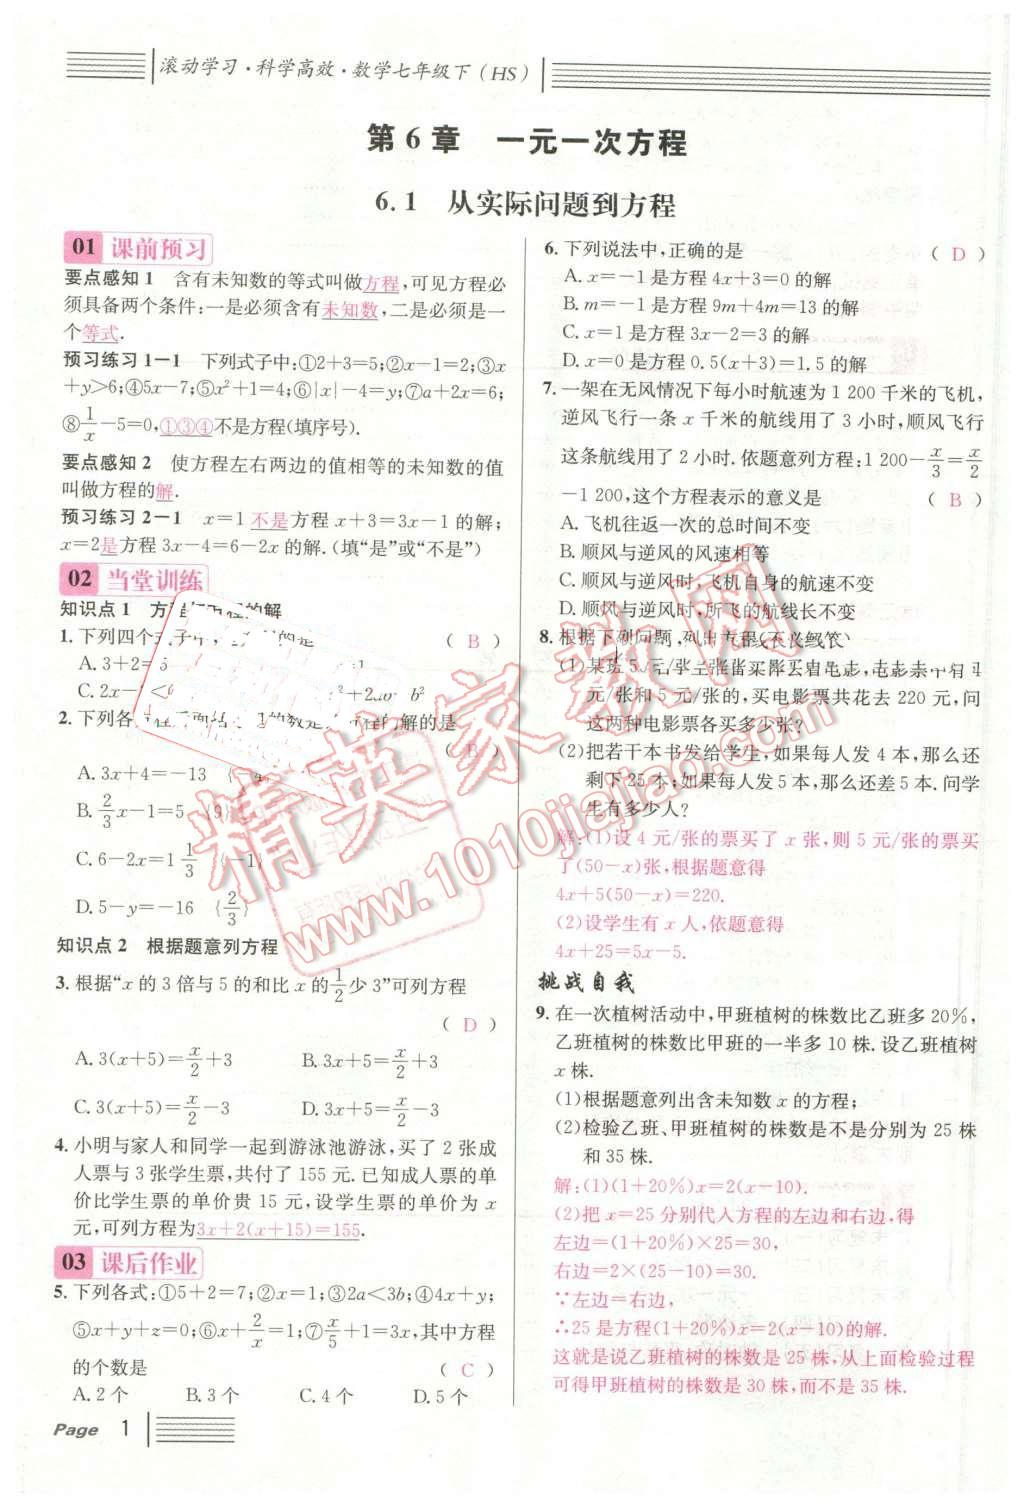 滚动学习·科学高效·数学七年级下(HS)
第6章 一元一次方程
6.1 从实际问题到方程
01 课前预习
要点感知1 含有未知数的等式叫做方程,可见方程必
须具备两个条件:一是必须含有未知数,二是必须是一
个等式.
预习练习1-1 下列式子中:①2+3=5;②x-1=2;③x
+y>6;④5x-7;⑤x²+1=4;⑥|x|-4=y;⑦a+2x=6;
⑧1/x-5=0,①③④不是方程(填序号).
要点感知2 使方程左右两边的值相等的未知数的值
叫做方程的解.
预习练习2-1 x=1 不是方程 x+3=3x-1 的解;
x=2是方程 3x-4=6-2x 的解.(填“是”或“不是”)
02 当堂训练
知识点1 方程与方程的解
1.下列四个式子中,是方程的是 ( B )
A.3+2=5
C.2x- <0 ²+2ab b²
2.下列各方程后面 的数是 方程的解的是
( B )
A.3x+4=-13 {-4}
B.2/3x-1=5 {9}
C.6-2x=1 1/3 {-1}
D.5-y=-16 {2/3}
知识点2 根据题意列方程
3.根据“x的3倍与5的和比x的1/2少3”可列方程
( D )
A.3(x+5)=x/2+3 B.3x+5=x/2+3
C.3(x+5)=x/2-3 D.3x+5=x/2-3
4.小明与家人和同学一起到游泳池游泳,买了2张成
人票与3张学生票,共付了155元.已知成人票的单
价比学生票的单价贵15元,设学生票的单价为x
元,可列方程为3x+2(x+15)=155.
03 课后作业
5.下列各式:①5+2=7;②x=1;③2a<3b;④4x+y;
⑤x+y+z=0;⑥x+2/x=1;⑦x/5+1=3x,其中方程
的个数是 ( C )
A.2个 B.3个 C.4个 D.5个
6.下列说法中,正确的是 ( D )
A.x=-1是方程4x+3=0的解
B.m=-1是方程9m+4m=13的解
C.x=1是方程3x-2=3的解
D.x=0是方程0.5(x+3)=1.5的解
7.一架在无风情况下每小时航速为1 200千米的飞机,
逆风飞行一条x千米的航线用了3小时,顺风飞行
这条航线用了2小时.依题意列方程:1 200-x/3=x/2
-1 200,这个方程表示的意义是 ( B )
A.飞机往返一次的总时间不变
B.顺风与逆风的风速相等
C.顺风与逆风时,飞机自身的航速不变
D.顺风与逆风时,所飞的航线长不变
8.根据下列问题,列出方程(不必解答)
(1)某班50
元/张和5元/张的,买电影票共花去220元,问
这两种电影票各买多少张?
(2)把若干本书发给学生,如果每人发4本,那么还
剩下25本;如果每人发5本,那么还差5本.问学
生有多少人?
解:(1)设4元/张的票买了x张,则5元/张的票买
了(50-x)张,根据题意得
4x+5(50-x)=220.
(2)设学生有x人,依题意得
4x+25=5x-5.
挑战自我
9.在一次植树活动中,甲班植树的株数比乙班多20%,
乙班植树的株数比甲班的一半多10株.设乙班植树
x株.
(1)根据题意列出含未知数x的方程;
(2)检验乙班、甲班植树的株数是不是分别为25株
和35株.
解:(1)(1+20%)x=2(x-10).
(2)把x=25分别代入方程的左边和右边,得
左边=(1+20%)×25=30,
右边=2×(25-10)=30.
∵左边=右边,
∴25是方程(1+20%)x=2(x-10)的解.
这就是说乙班植树的株数是25株,从上面检验过程
可得甲班植树的株数是30株,而不是35株.
精英家教网
www.1010jiajiao.com
Page 1